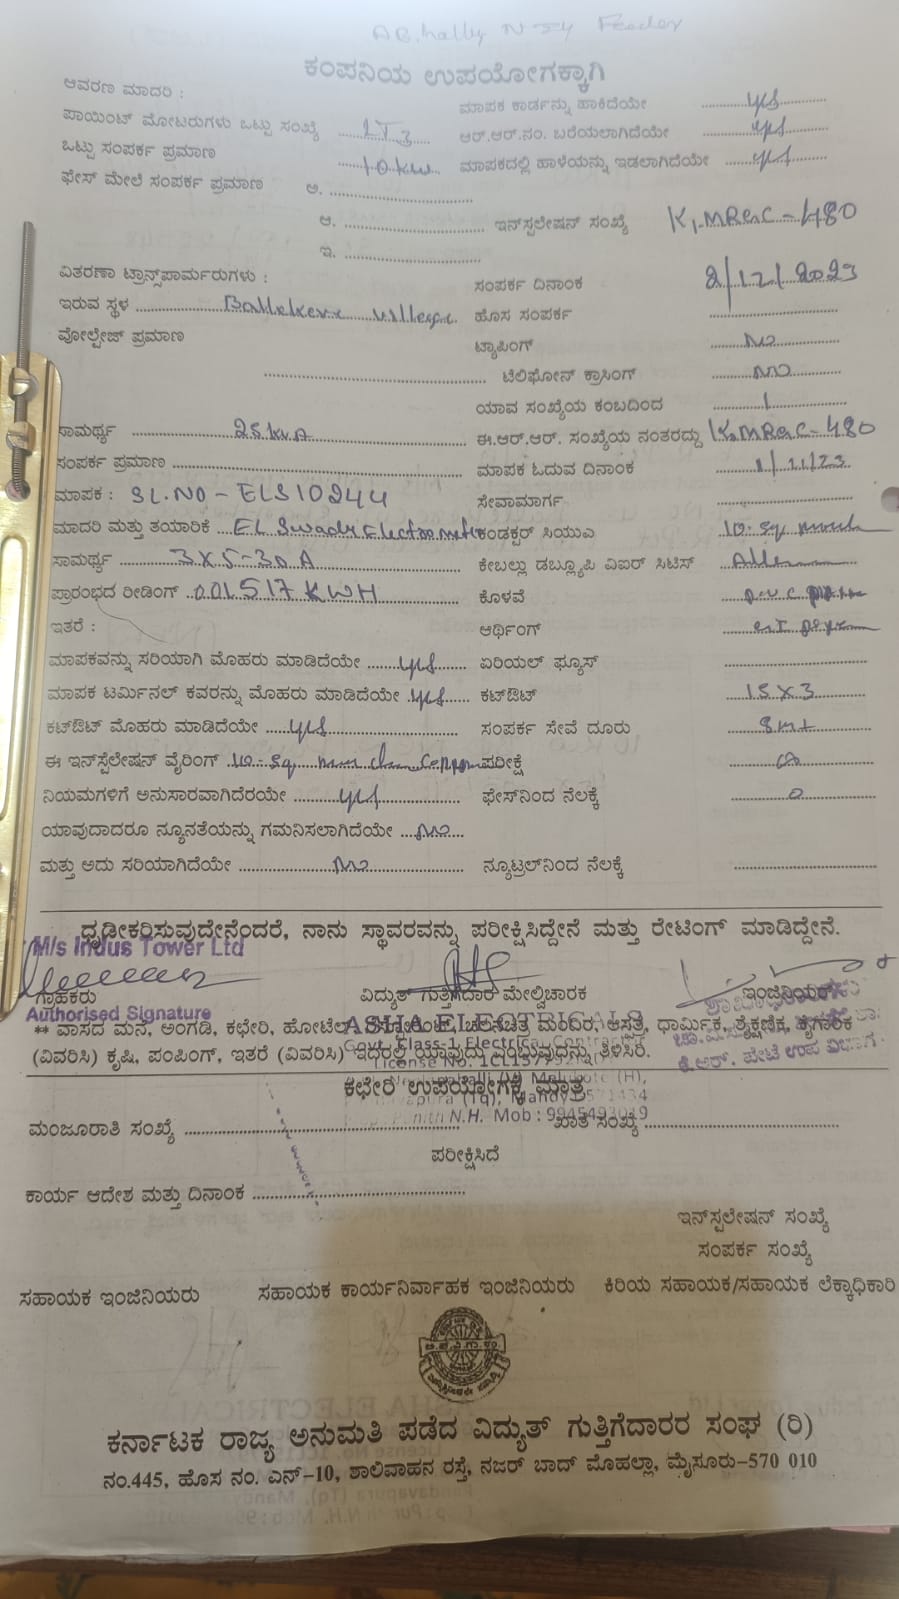 N J Y Feeder
ಕಂಪನಿಯ ಉಪಯೋಗಕ್ಕಾಗಿ
ಆವರಣ ಮಾದರಿ : ಮಾಪಕ ಕಾರ್ಡನ್ನು ಹಾಕಿದೆಯೇ yes
ಪಾಯಿಂಟ್ ಮೋಟರುಗಳು ಒಟ್ಟು ಸಂಖ್ಯೆ LT3 ಆರ್.ಆರ್.ನಂ. ಬರೆಯಲಾಗಿದೆಯೇ yes
ಒಟ್ಟು ಸಂಪರ್ಕ ಪ್ರಮಾಣ 10 kw ಮಾಪಕದಲ್ಲಿ ಹಾಳೆಯನ್ನು ಇಡಲಾಗಿದೆಯೇ yes
ಫೇಸ್ ಮೇಲೆ ಸಂಪರ್ಕ ಪ್ರಮಾಣ ಅ.
ಆ. ಇನ್‌ಸ್ಪಲೇಷನ್ ಸಂಖ್ಯೆ K,MRGC-480
ಇ.
ವಿತರಣಾ ಟ್ರಾನ್ಸ್‌ಪಾರ್ಮರುಗಳು : ಸಂಪರ್ಕ ದಿನಾಂಕ 2/12/2023
ಇರುವ ಸ್ಥಳ Ballekere village ಹೊಸ ಸಂಪರ್ಕ
ವೋಲ್ಟೇಜ್ ಪ್ರಮಾಣ ಟ್ಯಾಪಿಂಗ್ no
ಟೆಲಿಫೋನ್ ಕ್ರಾಸಿಂಗ್ no
ಯಾವ ಸಂಖ್ಯೆಯ ಕಂಬದಿಂದ 1
ಸಾಮರ್ಥ್ಯ 25 kvA ಈ.ಆರ್.ಆರ್. ಸಂಖ್ಯೆಯ ನಂತರದ್ದು K,MRGC-480
ಸಂಪರ್ಕ ಪ್ರಮಾಣ ಮಾಪಕ ಓದುವ ದಿನಾಂಕ 1/11/23
ಮಾಪಕ : SL.NO - ELS10244 ಸೇವಾಮಾರ್ಗ
ಮಾದರಿ ಮತ್ತು ತಯಾರಿಕೆ EL Swadi Electrometer ಕಂಡಕ್ಟರ್ ಸಿಯುಎ 10 sq mm
ಸಾಮರ್ಥ್ಯ 3X5-30 A ಕೇಬಲ್ಲು ಡಬ್ಲ್ಯೂಪಿ ವಿಐರ್ ಸಿಟಿಸ್
ಪ್ರಾರಂಭದ ರೀಡಿಂಗ್ 001517 KWH ಕೊಳವೆ p.v.c pipe
ಇತರೆ : ಆರ್ಥಿಂಗ್
ಮಾಪಕವನ್ನು ಸರಿಯಾಗಿ ಮೊಹರು ಮಾಡಿದೆಯೇ yes ಏರಿಯಲ್ ಫ್ಯೂಸ್
ಮಾಪಕ ಟರ್ಮಿನಲ್ ಕವರನ್ನು ಮೊಹರು ಮಾಡಿದೆಯೇ yes ಕಟ್‌ಔಟ್ 15 X 3
ಕಟ್‌ಔಟ್ ಮೊಹರು ಮಾಡಿದೆಯೇ yes ಸಂಪರ್ಕ ಸೇವೆ ದೂರು 8mt
ಈ ಇನ್‌ಸ್ಪೆಲೇಷನ್ ವೈರಿಂಗ್ 10 sq mm ಪರೀಕ್ಷೆ
ನಿಯಮಗಳಿಗೆ ಅನುಸಾರವಾಗಿದೆರಯೇ yes ಫೇಸ್‌ನಿಂದ ನೆಲಕ್ಕೆ 0
ಯಾವುದಾದರೂ ನ್ಯೂನತೆಯನ್ನು ಗಮನಿಸಲಾಗಿದೆಯೇ no
ಮತ್ತು ಅದು ಸರಿಯಾಗಿದೆಯೇ no ನ್ಯೂಟ್ರಲ್‌ನಿಂದ ನೆಲಕ್ಕೆ
ಧೃಡೀಕರಿಸುವುದೇನೆಂದರೆ, ನಾನು ಸ್ಥಾವರವನ್ನು ಪರೀಕ್ಷಿಸಿದ್ದೇನೆ ಮತ್ತು ರೇಟಿಂಗ್ ಮಾಡಿದ್ದೇನೆ.
M/s Indus Tower Ltd
ಗ್ರಾಹಕರು ವಿದ್ಯುತ್ ಗುತ್ತಿಗೆದಾರ ಮೇಲ್ವಿಚಾರಕ ಇಂಜಿನಿಯರ್
Authorised Signature
ASHA ELECTRICALS
** ವಾಸದ ಮನೆ, ಅಂಗಡಿ, ಕಛೇರಿ, ಹೋಟೆಲ್, ಚಲನಚಿತ್ರ ಮಂದಿರ, ಆಸತ್ರೆ, ಧಾರ್ಮಿಕ, ಶೈಕ್ಷಣಿಕ, ಕೃಗಾರಿಕೆ
Govt. Class-1 Electrical Contractor
(ವಿವರಿಸಿ) ಕೃಷಿ, ಪಂಪಿಂಗ್, ಇತರೆ (ವಿವರಿಸಿ) ಇದರಲ್ಲಿ ಯಾವುದು ಎಂಬುವುದನ್ನು ತಿಳಿಸಿರಿ.
License No.
ಕೆ.ಆರ್. ಪೇಟೆ ಉಪ ವಿಭಾಗ
ಕಛೇರಿ ಉಪಯೋಗಕ್ಕೆ ಮಾತ್ರ
(Tq), Mandya 571434
N.H. Mob : 9945493019
ಮಂಜೂರಾತಿ ಸಂಖ್ಯೆ ಖಾತೆ ಸಂಖ್ಯೆ
ಪರೀಕ್ಷಿಸಿದೆ
ಕಾರ್ಯ ಆದೇಶ ಮತ್ತು ದಿನಾಂಕ
ಇನ್‌ಸ್ಪಲೇಷನ್ ಸಂಖ್ಯೆ
ಸಂಪರ್ಕ ಸಂಖ್ಯೆ
ಸಹಾಯಕ ಇಂಜಿನಿಯರು ಸಹಾಯಕ ಕಾರ್ಯನಿರ್ವಾಹಕ ಇಂಜಿನಿಯರು ಕಿರಿಯ ಸಹಾಯಕ/ಸಹಾಯಕ ಲೆಕ್ಕಾಧಿಕಾರಿ
ಕರ್ನಾಟಕ ರಾಜ್ಯ ಅನುಮತಿ ಪಡೆದ ವಿದ್ಯುತ್ ಗುತ್ತಿಗೆದಾರರ ಸಂಘ (ರಿ)
ನಂ.445, ಹೊಸ ನಂ. ಎನ್-10, ಶಾಲಿವಾಹನ ರಸ್ತೆ, ನಜರ್ ಬಾದ್ ಮೊಹಲ್ಲಾ, ಮೈಸೂರು-570 010